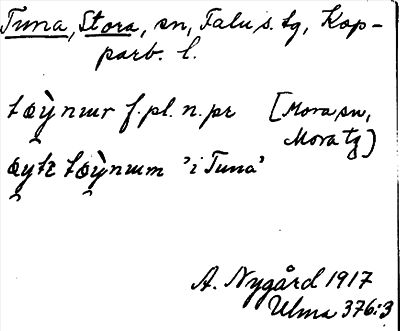 Tuna, Stora, sn, Falu s. tg, Kop-
parb. l.
tœ̯ỳnɯr f. pl. n. pr [Mora sn,
Mora tg]
œ̯ytɛ tœ̯ỳnɯm 'i Tuna'
A. Nygård 1917
Ulma 376:3